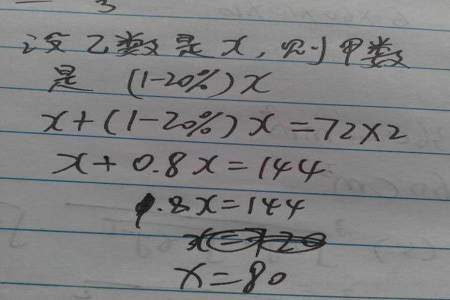 3
设乙数是x,则甲数
是 (1-20%)x
x+(1-20%)x=72×2
x+0.8x=144
1.8x=144
x=80